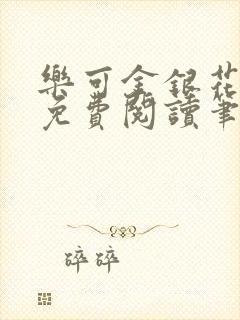 樂可金銀花
免費閱讀筆
碎碎